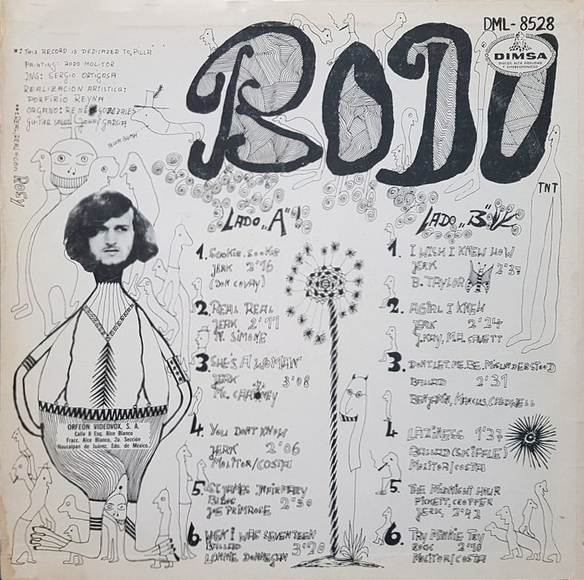 DML-8528
DIMSA
RODO
TNT
THIS RECORD IS DEDICATED TO, PILLA
PAINTING: RODO MOLITOR
ING: SERGIO ORTIGOSA
REALIZACIÓN ARTISTICA:
PORFIRIO REYNA
ORGANO: RENE GONZALES
GUITAR SOLO: Johny GARCIA
LADO "A"
1. SOOKIE, SOOKIE
JERK 2'46
(DON COVAY)
2. REAL REAL
JERK 2'11
N. SIMONE
3. SHE'S A WOMAN
JERK 3'08
MC. CARTNEY
4. YOU DON'T KNOW
JERK 2'06
MOLITOR/COSTA
5. ST. JAMES INFIRMARY
2'50
JOE PRIMROSE
6. WEN I WAS SEVENTEEN
BALLAD
LONNIE DONNEGAN
ORFEON VIDEOVOX, S. A.
Calle 8 Esq. Alce Blanco
Fracc. Alce Blanco, 2a. Sección
Naucalpan de Juárez, Edo. de México.
LADO "B"
1. I WISH I KNEW HOW
JERK 2'37
B. TAYLOR
2. A GIRL I KNEW
JERK 2'24
J. KAY, M.R. CAVETT
3. DON'T LET ME BE MISUNDERSTOOD
BALLAD 2'31
BENJAMIN, MARCUS, CALDWELL
4. LAZINESS 1'37
BALLAD (SKIFFLE)
MOLITOR/COSTA
5. THE MIDNIGHT HOUR
PICKETT, CROPPER
JERK 2'42
6. TRY MINNIE TRY
MOLITOR/COSTA